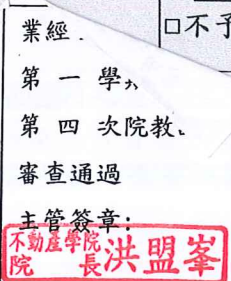 業經
□不予
第 一 學
第 四 次院教
審查通過
主管簽章:
不動產學院
院 長 洪盟峯